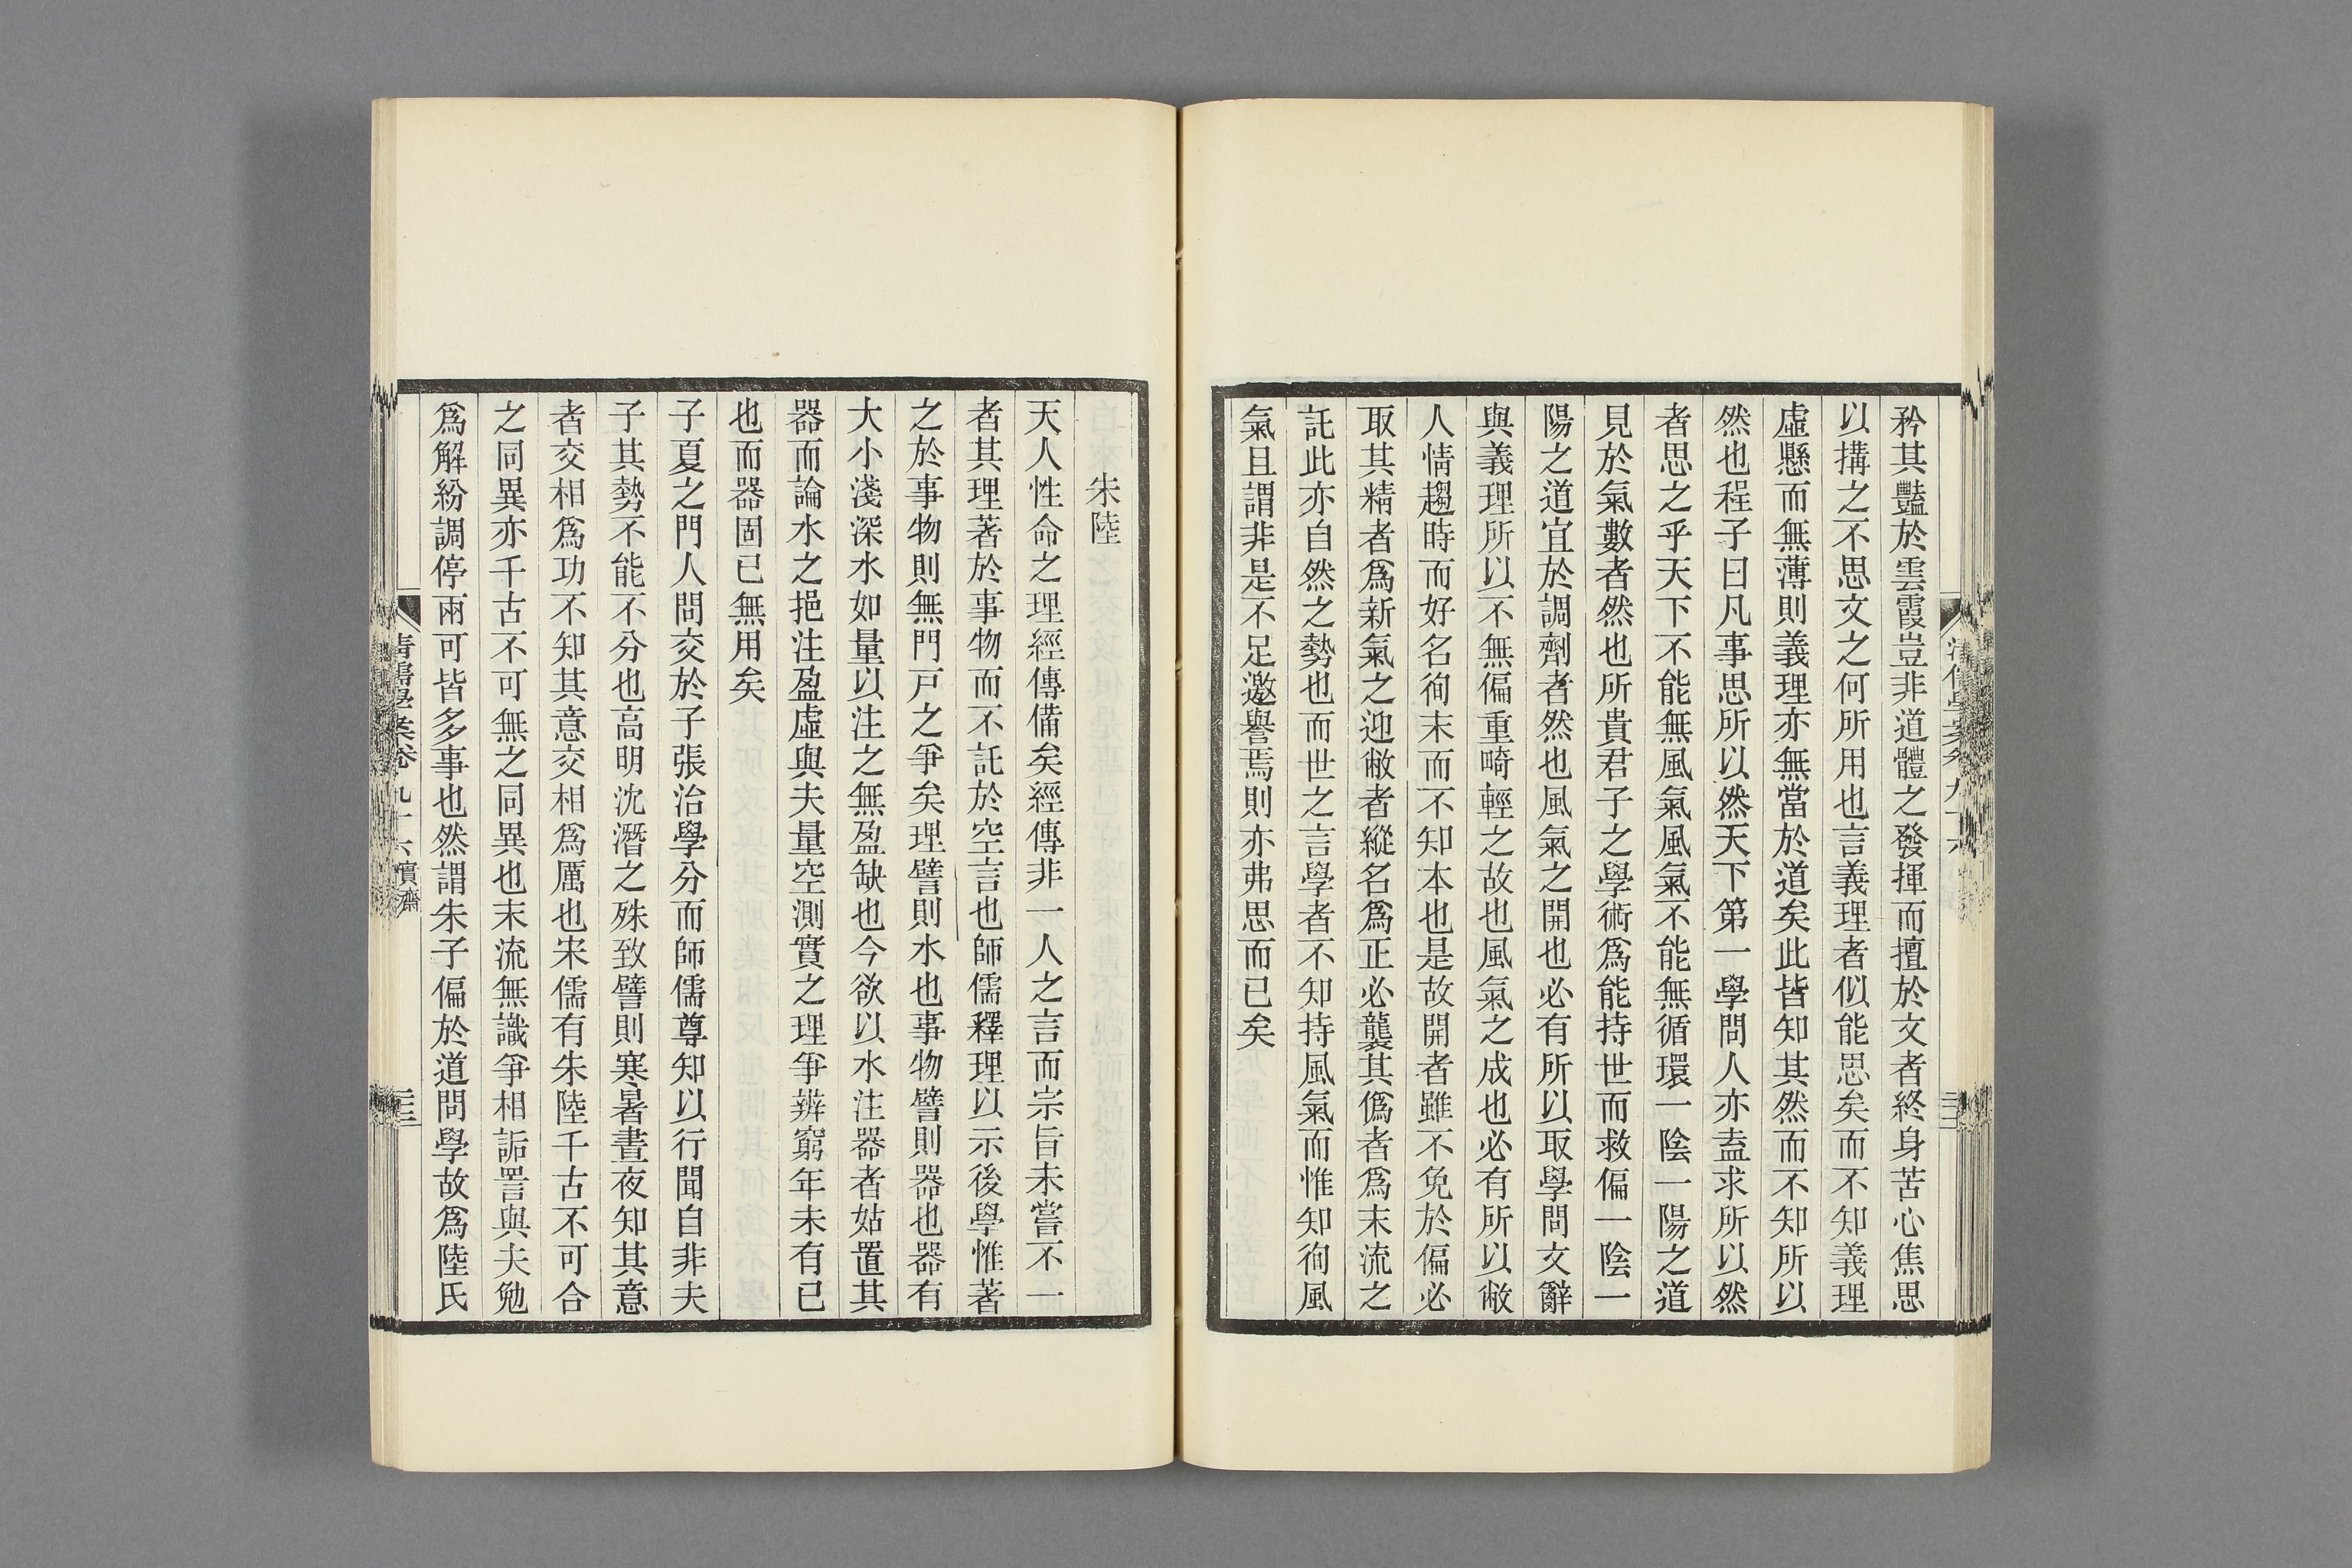 矜其豔於雲霞豈非道體之發揮而擅於文者終身苦心焦思
以搆之不思文之何所用也言義理者似能思矣而不知義理
虛懸而無薄則義理亦無當於道矣此皆知其然而不知所以
然也程子曰凡事思所以然天下第一學問人亦盍求所以然
者思之乎天下不能無風氣風氣不能無循環一陰一陽之道
見於氣數者然也所貴君子之學術爲能持世而救偏一陰一
陽之道宜於調劑者然也風氣之開也必有所以取學問文辭
與義理所以不無偏重畸輕之故也風氣之成也必有所以敝
人情趨時而好名徇末而不知本也是故開者雖不免於偏必
取其精者爲新氣之迎敝者縱名爲正必襲其僞者爲末流之
託此亦自然之勢也而世之言學者不知持風氣而惟知徇風
氣且謂非是不足邀譽焉則亦弗思而已矣
朱陸
天人性命之理經傳備矣經傳非一人之言而宗旨未嘗不一
者其理著於事物而不託於空言也師儒釋理以示後學惟著
之於事物則無門戸之爭矣理譬則水也事物譬則器也器有
大小淺深水如量以注之無盈缺也今欲以水注器者姑置其
器而論水之挹注盈虛與夫量空測實之理爭辨窮年未有已
也而器固已無用矣
子夏之門人問交於子張治學分而師儒尊知以行聞自非夫
子其勢不能不分也高明沈潛之殊致譬則寒暑晝夜知其意
者交相爲功不知其意交相爲厲也宋儒有朱陸千古不可合
之同異亦千古不可無之同異也末流無識爭相詬詈與夫勉
爲解紛調停兩可皆多事也然謂朱子偏於道問學故爲陸氏
清儒學案卷九十六實齋